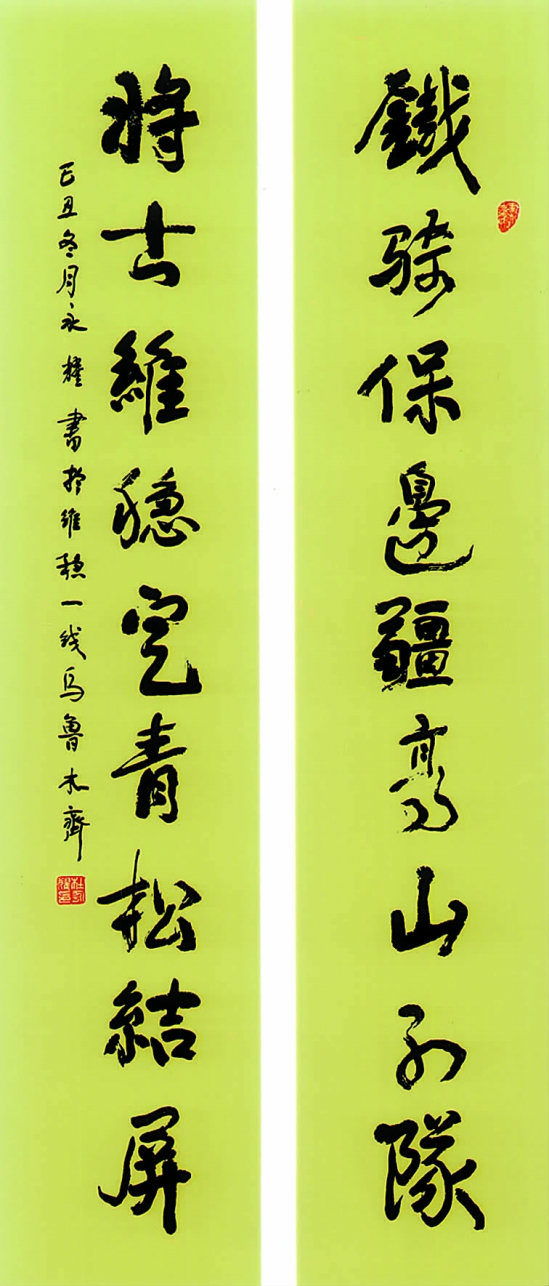 鐵騎保邊疆高山列隊
將士維穩定青松結屏
己丑冬月永權書於維穩一线烏魯木齊